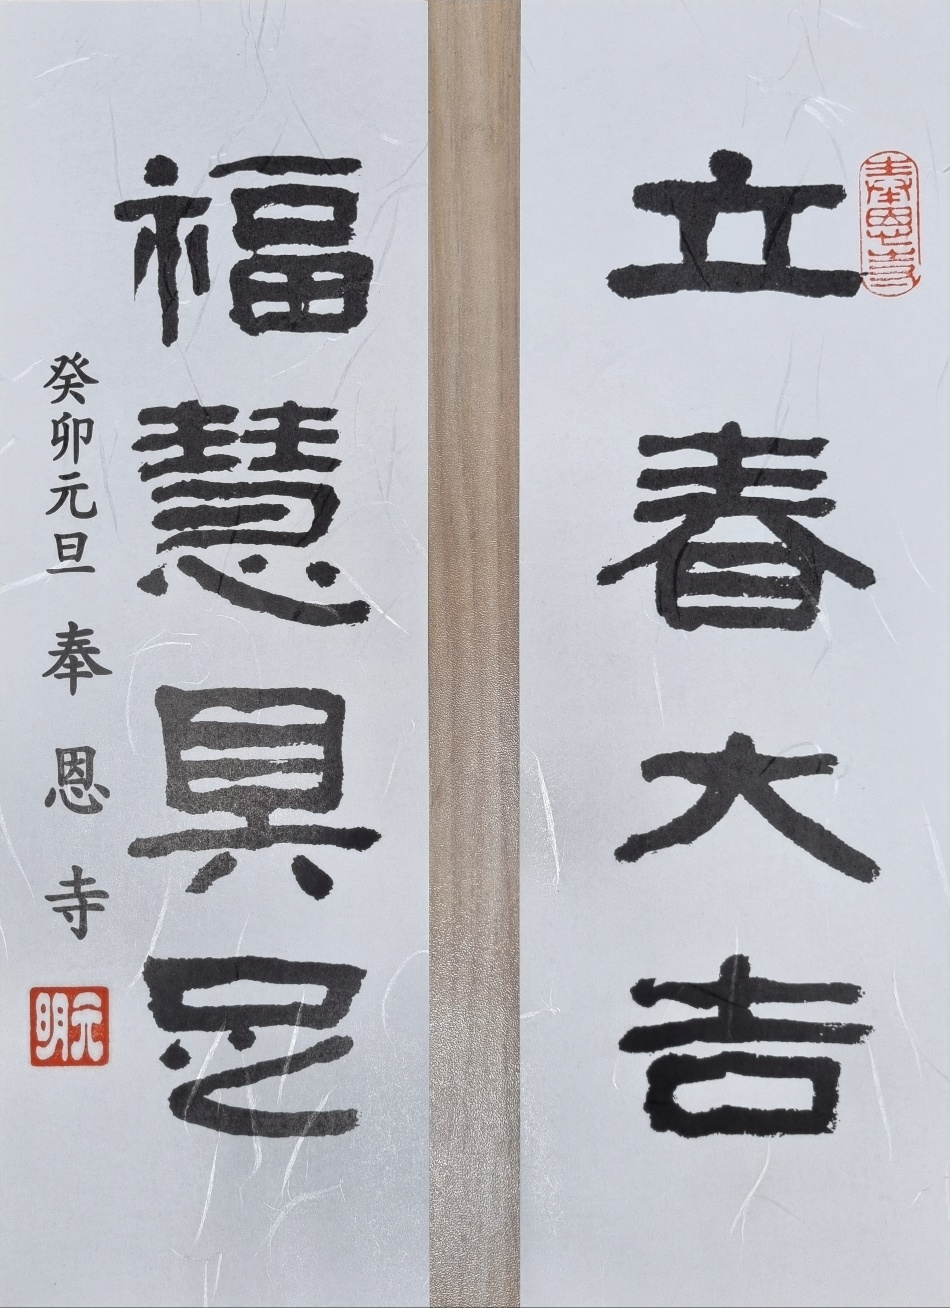 立春大吉
奉恩寺
福慧具足
癸卯元旦 奉恩寺
元明